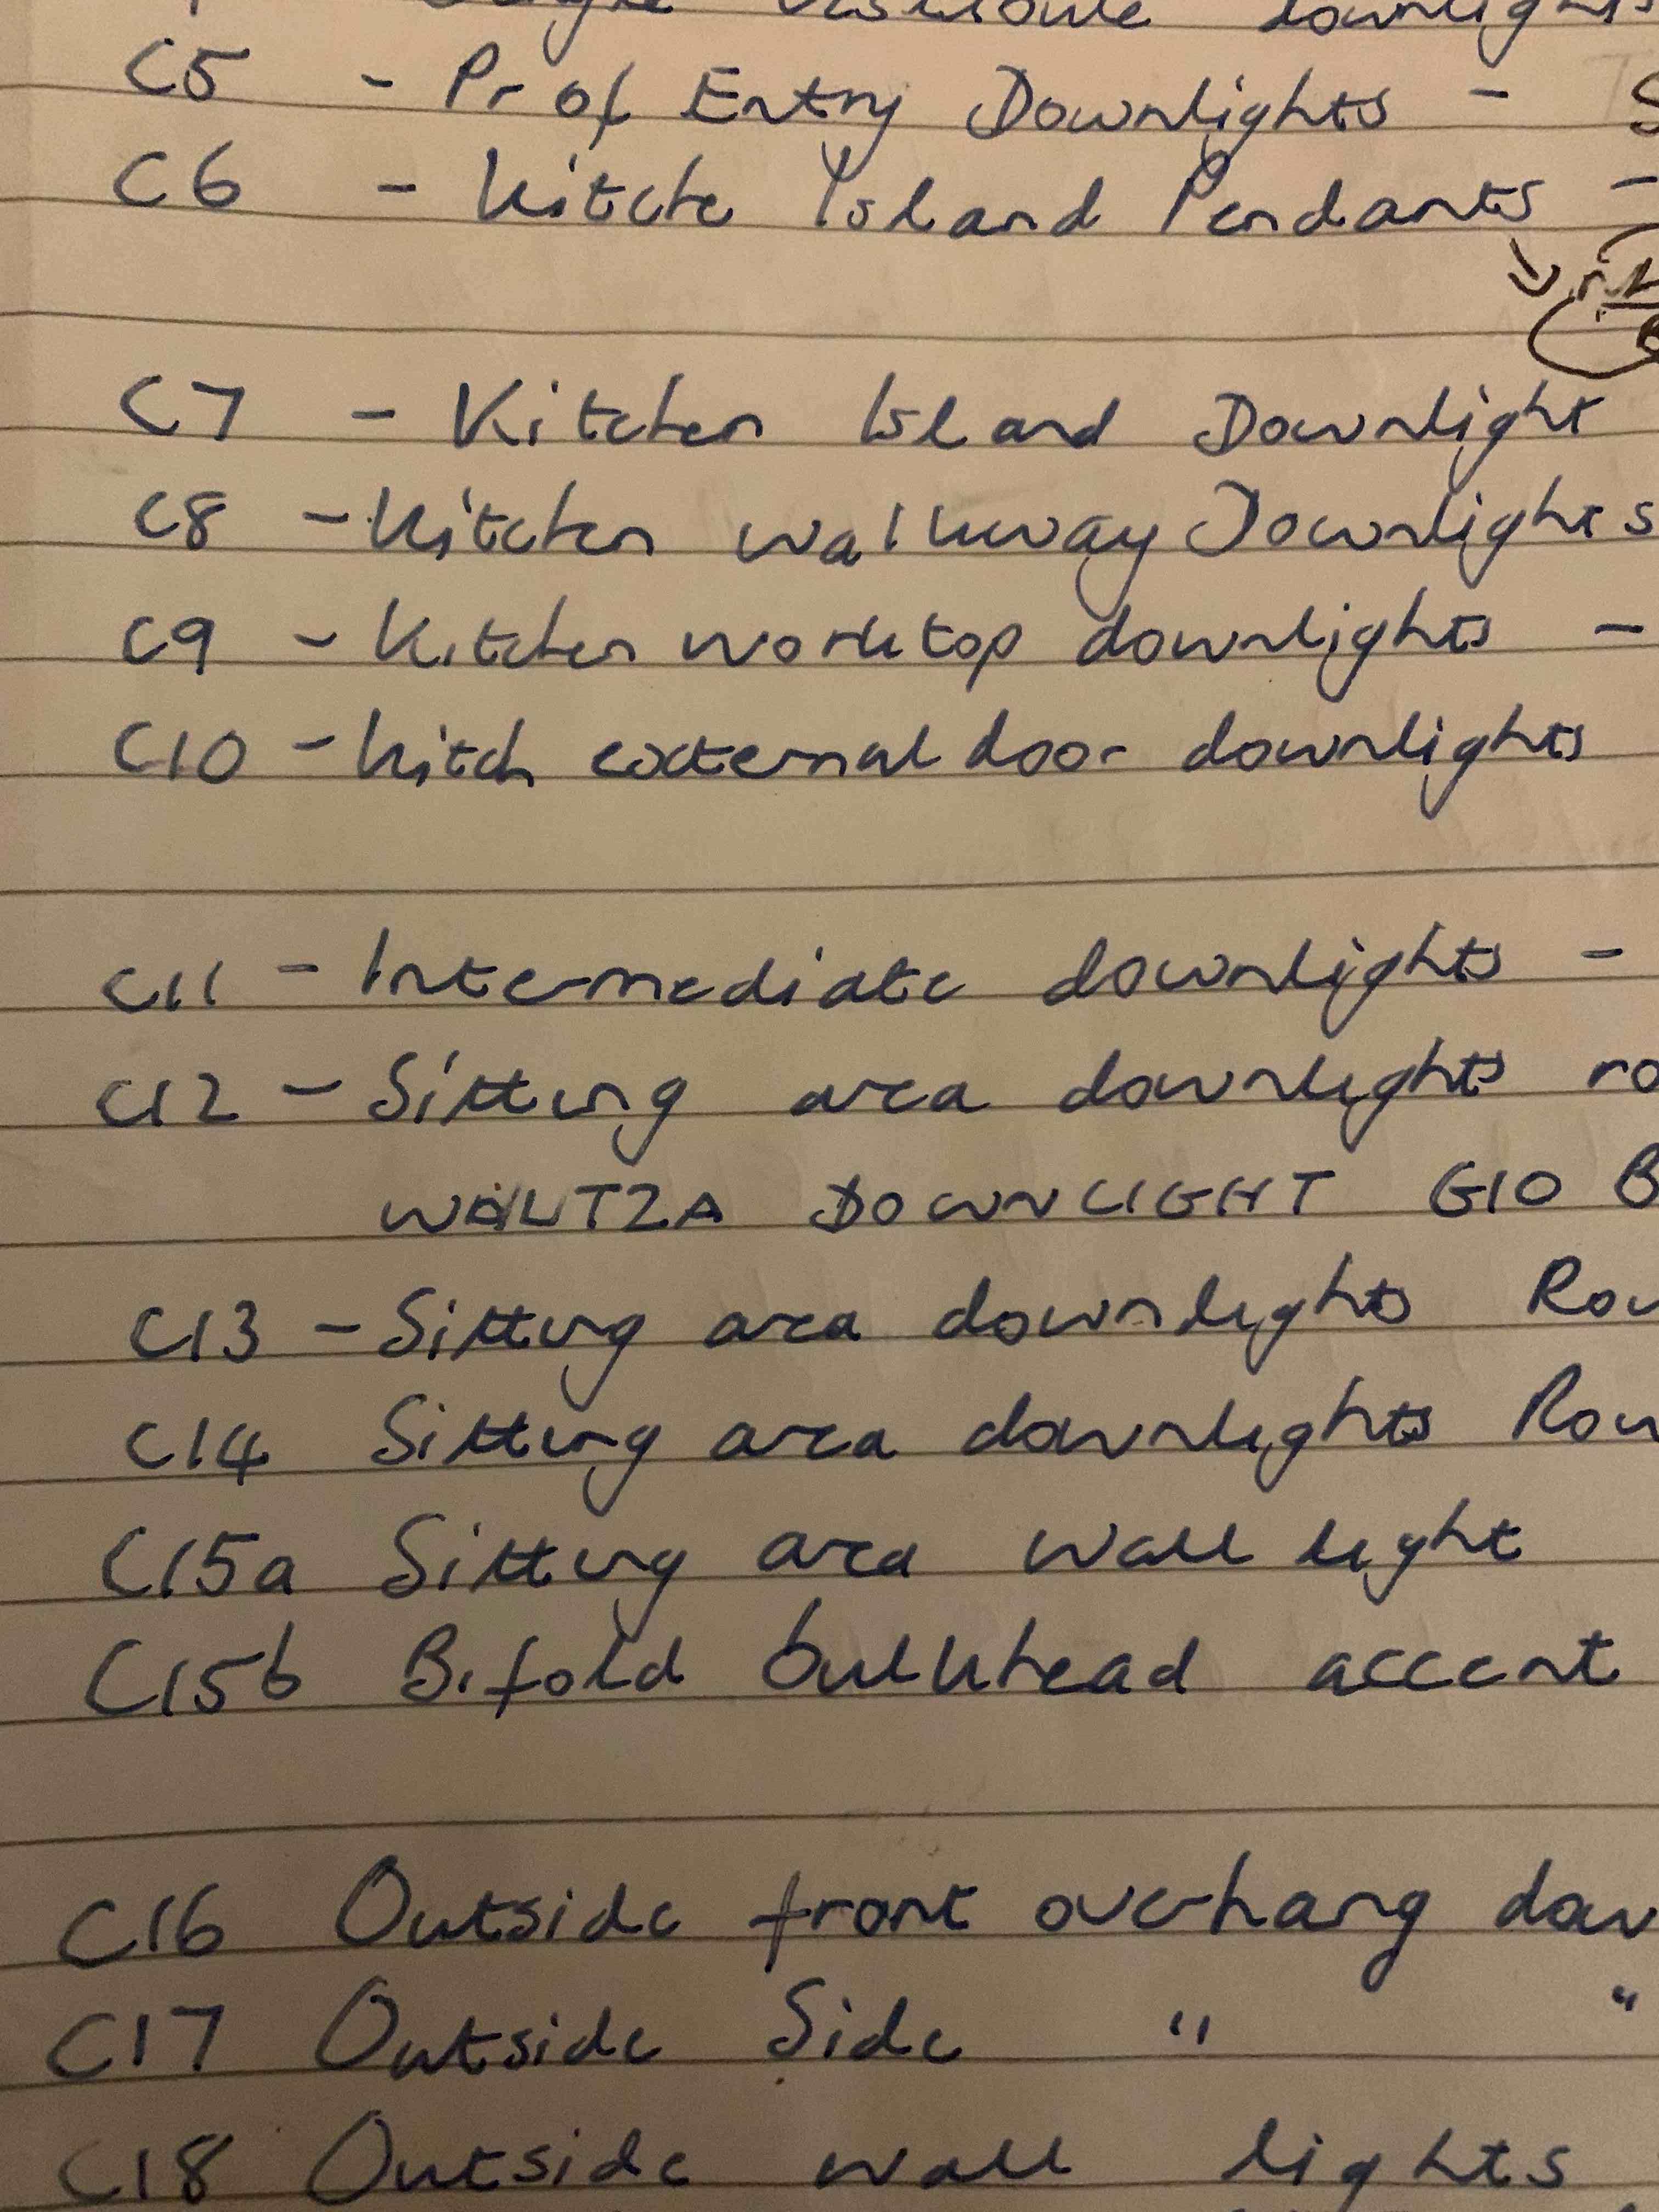 downlights
C5 - Pr of Entry Downlights - S
C6 - Kitche Island Pendants -
C7 - Kitchen Island Downlight
C8 - Kitchen walkway Downlights
C9 - Kitchen worktop downlights -
C10 - Kitch external door downlights
C11 - Intermediate downlights -
C12 - Sitting area downlights ro
WALTZA DOWNLIGHT G10 B
C13 - Sitting area downlights Row
C14 Sitting area downlights Row
C15a Sitting area wall light
C15b Bifold bulkhead accent
C16 Outside front overhang dow
C17 Outside Side " "
C18 Outside wall lights